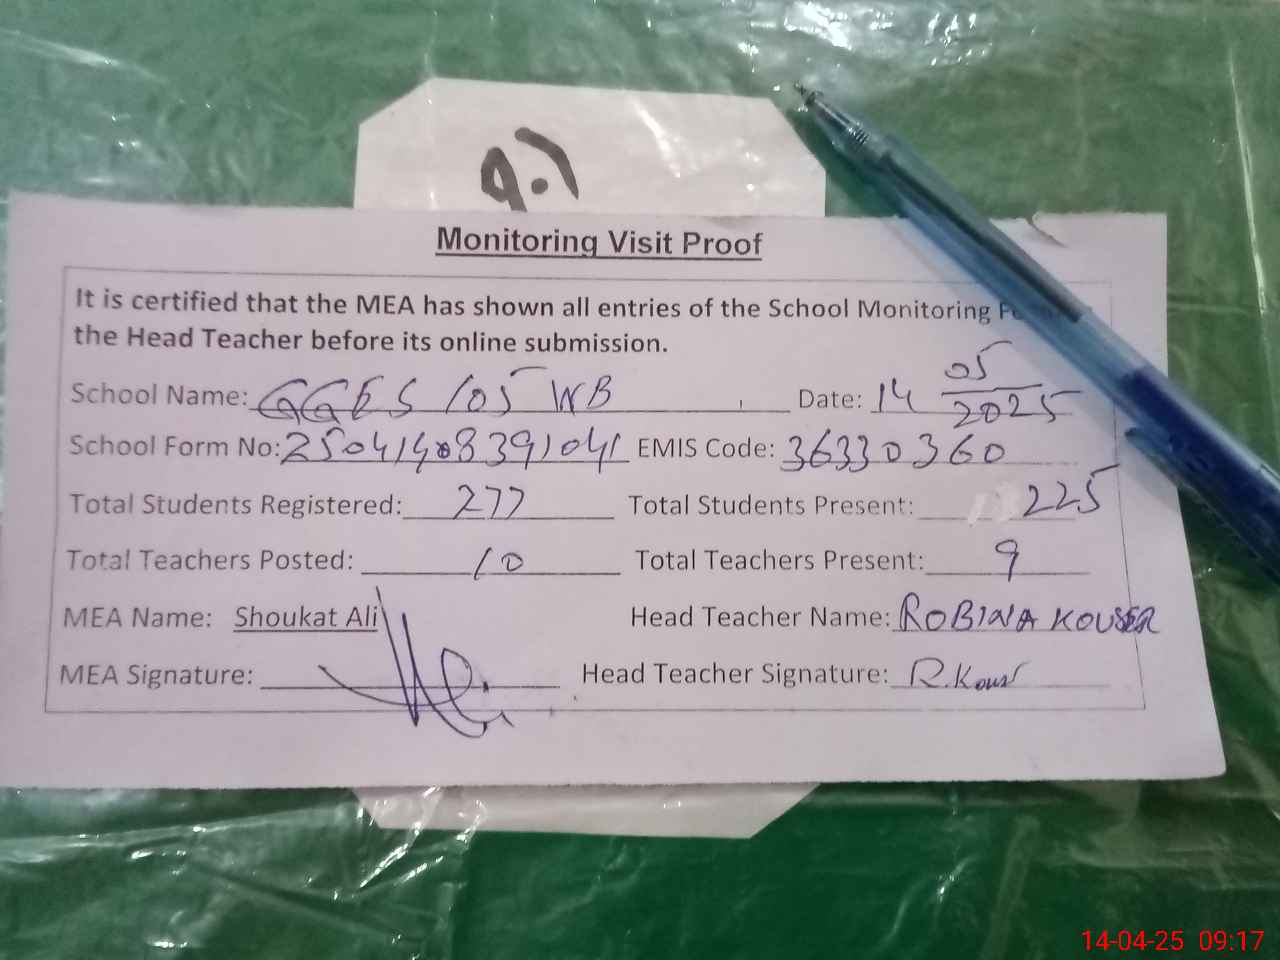 Monitoring Visit Proof
It is certified that the MEA has shown all entries of the School Monitoring
the Head Teacher before its online submission.
School Name: GGES 105 WB Date: 14 05/2025
School Form No: 25041408391041 EMIS Code: 36330360
Total Students Registered: 277 Total Students Present: 225
Total Teachers Posted: 10 Total Teachers Present: 9
MEA Name: Shoukat Ali Head Teacher Name: ROBINA KOUSER
MEA Signature: Head Teacher Signature: R.Kousr
14-04-25 09:17